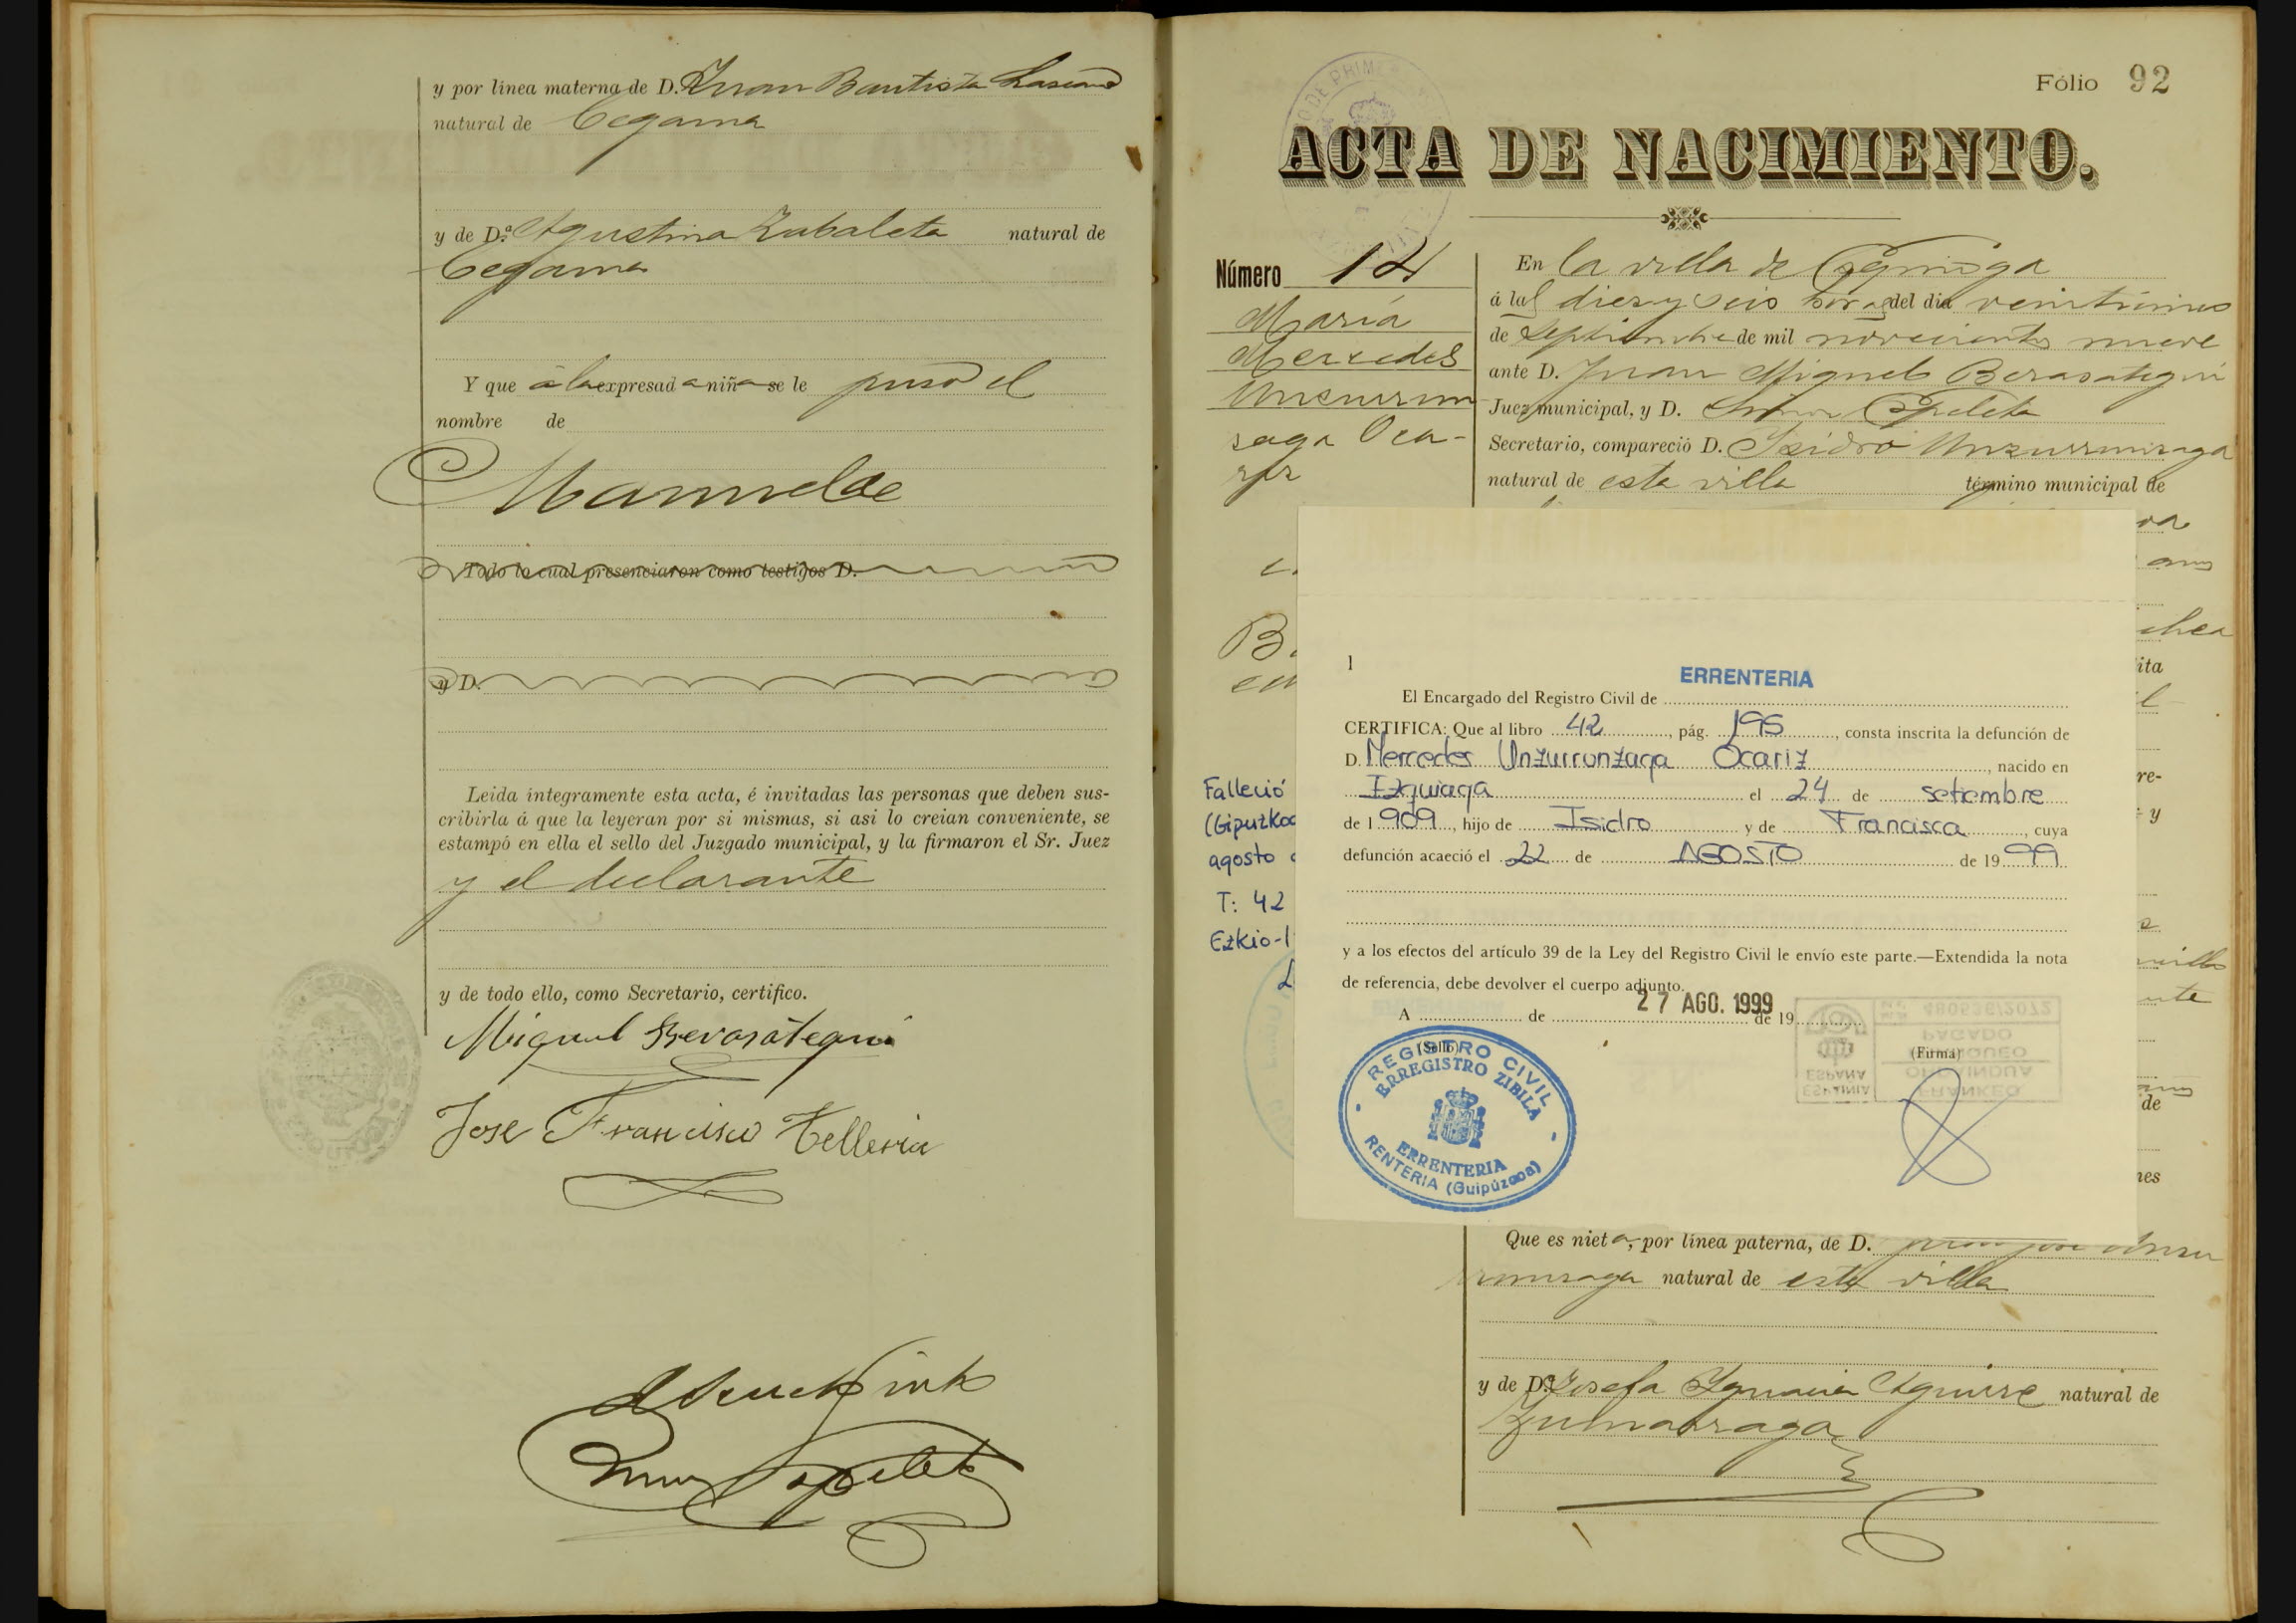 y por línea materna de D. Juan Bautista Lascano
natural de Cegama
y de D.ª Agustina Zubaleta natural de
Cegama
Y que á la expresada niña se le puso el
nombre de
Manuela
Todo lo cual presenciaron como testigos D.
y D.
Leida íntegramente esta acta, é invitadas las personas que deben sus-
cribirla á que la leyeran por si mismas, si asi lo creian conveniente, se
estampó en ella el sello del Juzgado municipal, y la firmaron el Sr. Juez
y el declarante
y de todo ello, como Secretario, certifico.
Miguel Berasategui
Jose Francisco Telleria
Fólio 92
ACTA DE NACIMIENTO.
Número 14
María
Mercedes
Unzurrun
zaga Oca-
riz
En la villa de Ezquioga
á las diez y seis horas del dia veinticinco
de Septiembre de mil novecientos nueve
ante D. Juan Miguel Berasategui
Juez municipal, y D.
Secretario, compareció D. Isidro Unzurrunzaga
natural de esta villa término municipal de
ita
re-
y
de
nes
Falleció
(Gipuzkoa
agosto
T: 42
Ezkio-I
1
ERRENTERIA
El Encargado del Registro Civil de
CERTIFICA: Que al libro 42, pág. 195, consta inscrita la defunción de
D. Mercedes Unzurrunzaga Ocariz, nacido en
Izquiaga el 24 de setiembre
de 1909, hijo de Isidro y de Francisca, cuya
defunción acaeció el 22 de AGOSTO de 1999
y a los efectos del artículo 39 de la Ley del Registro Civil le envío este parte.—Extendida la nota
de referencia, debe devolver el cuerpo adjunto.
27 AGO. 1999
A de de 19
(Sello)
(Firma)
REGISTRO CIVIL
ERREGISTRO ZIBILA
ERRENTERIA
RENTERIA (Guipúzcoa)
480536/2072
PAGADO
FRANQUEO
ORDAINDUA
FRANKEO
ESPAÑA
ESPAINIA
Que es nieta, por línea paterna, de D. Juan José Unzu
rrunzaga natural de esta villa
y de D.ª Josefa Ignacia Aguirre natural de
Zumarraga